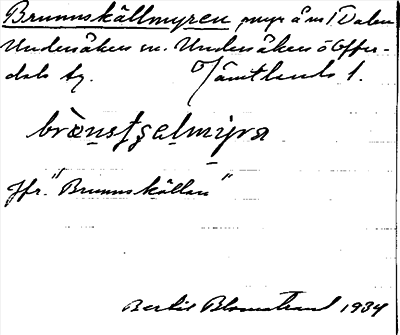 Brunnskällmyren myr å ns 1 Dalen
Undersåkers sn. Undersåkers o Offer-
dals tg. Jämtlands l.
brònstʂelmýra
Jfr. "Brunnskällan"
Bertil Blomstrand 1934